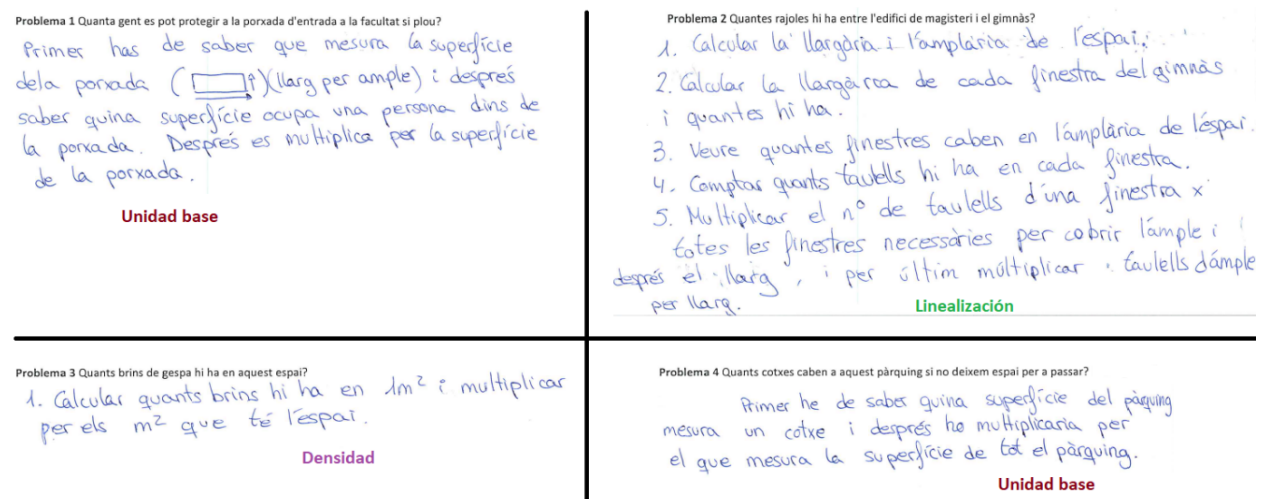 Problema 1 Quanta gent es pot protegir a la porxada d'entrada a la facultat si plou?
Primer has de saber que mesura la superfície
dela porxada ( )(llarg per ample) i després
saber quina superfície ocupa una persona dins de
la porxada. Després es multiplica per la superfície
de la porxada.
Unidad base
Problema 2 Quantes rajoles hi ha entre l'edifici de magisteri i el gimnàs?
1. Calcular la llargària i l'amplària de l'espai.
2. Calcular la llargàrca de cada finestra del gimnàs
i quantes hi ha.
3. Veure quantes finestres caben en l'amplària de l'éspai.
4. Comptar quants taulells hi ha en cada finestra.
5. Multiplicar el nº de taulells d'una finestra x
totes les finestres necessàries per cobrir l'ample i
després el llarg, i per últim múltiplicar taulells d'ample
per llarg.
Linealización
Problema 3 Quants brins de gespa hi ha en aquest espai?
1. Calcular quants brins hi ha en 1m² i multiplicar
per els m² que té l'espai.
Densidad
Problema 4 Quants cotxes caben a aquest pàrquing si no deixem espai per a passar?
Primer he de saber quina superfície del pàrquing
mesura un cotxe i després ho multiplicaria per
el que mesura la superfície de tot el pàrquing.
Unidad base